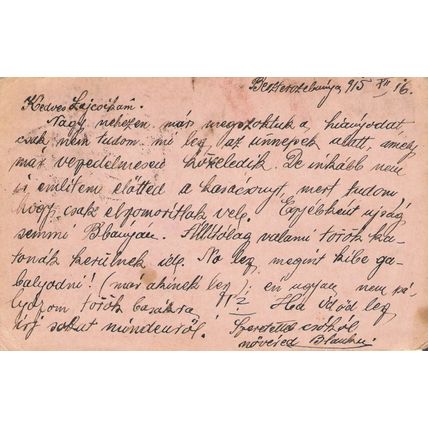 Beszterczebánya, 915 XII 16.
Kedves Lajcsikám.
Nagy nehezen már megszoktuk a hiányodat,
csak nem tudom mi lesz az ünnepek alatt, amely
már veszedelmesen közeledik. De inkább nem
is említem előtted a karácsonyt, mert tudom
hogy csak elszomorítlak vele. Egyébként ujság
semmi Bbanyán. Állitólag valami török ka-
tonák kerülnek ide. No lesz megint kibe ga-
balyodni! (már akinek lesz); én ugyan nem pá-
lyázom török basákra. Ha időd lesz
írj sokat mindenről! Szeretettel csókol
nővéred